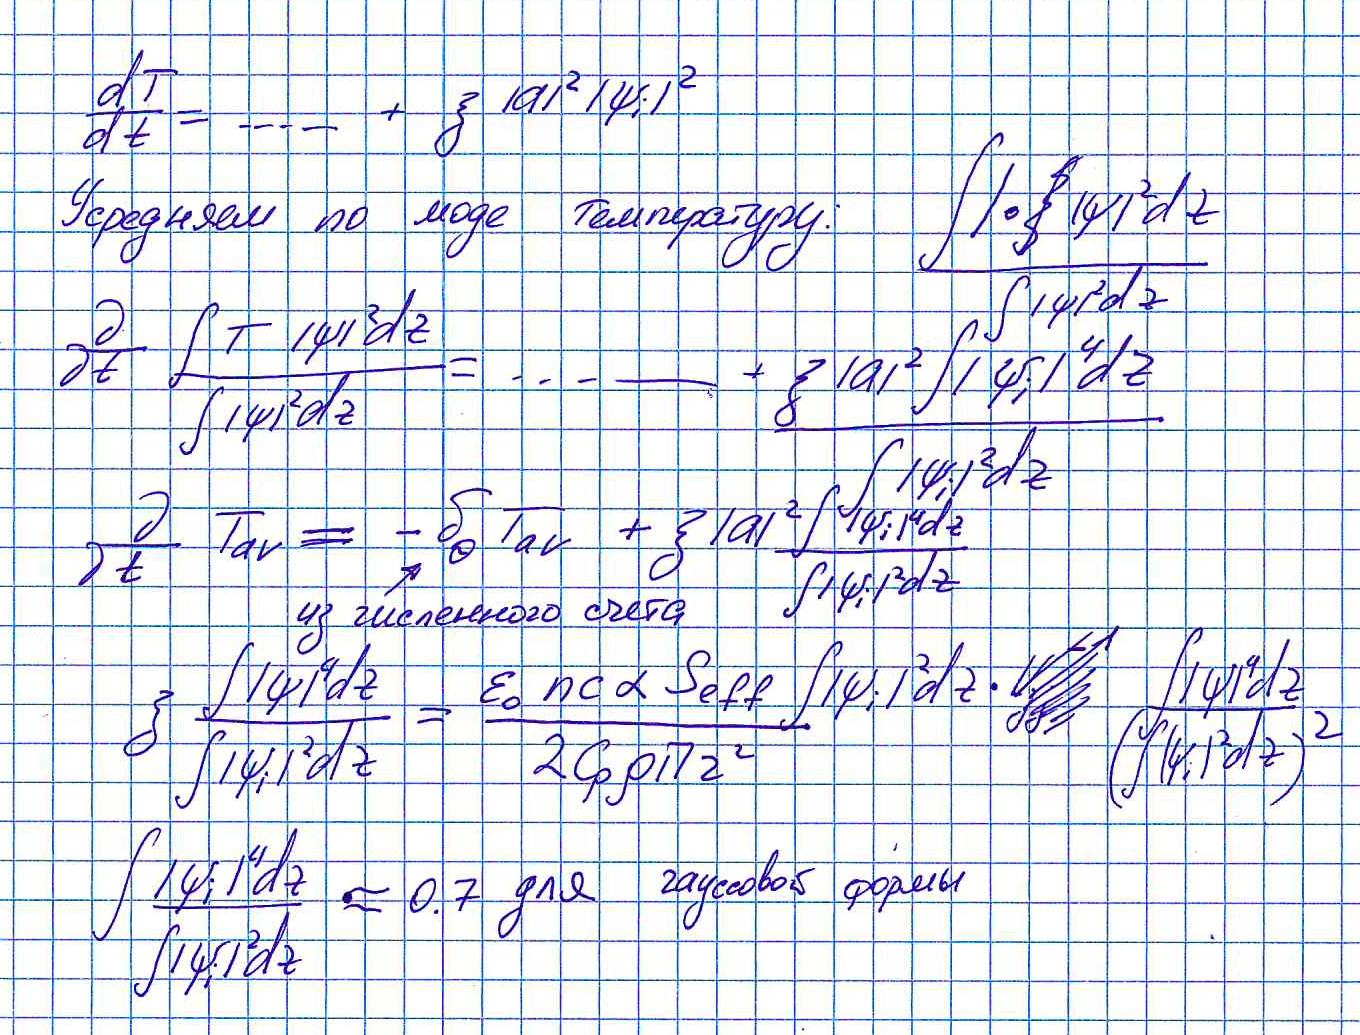 dT/dt = ..... + ξ |a|² |ψᵢ|²
Усредняем по моде температуру: ∫ 1·ξ |ψ|² dz / ∫ |ψ|² dz
∂/∂t ∫ T |ψ|² dz / ∫ |ψ|² dz = ... + ξ |a|² ∫ |ψᵢ|⁴ dz / ∫ |ψᵢ|² dz
∂/∂t Tav = - δ₀ Tav + ξ |a|² ∫ |ψᵢ|⁴ dz / ∫ |ψᵢ|² dz
из численного счета
ξ ∫ |ψ|⁴ dz / ∫ |ψᵢ|² dz = ε₀ n c α Seff / 2 Cp ρ π r² ∫ |ψᵢ|² dz · ∫ |ψ|⁴ dz / (∫ |ψᵢ|² dz)²
∫ |ψᵢ|⁴ dz / ∫ |ψᵢ|² dz ≈ 0.7 для гауссовой формы